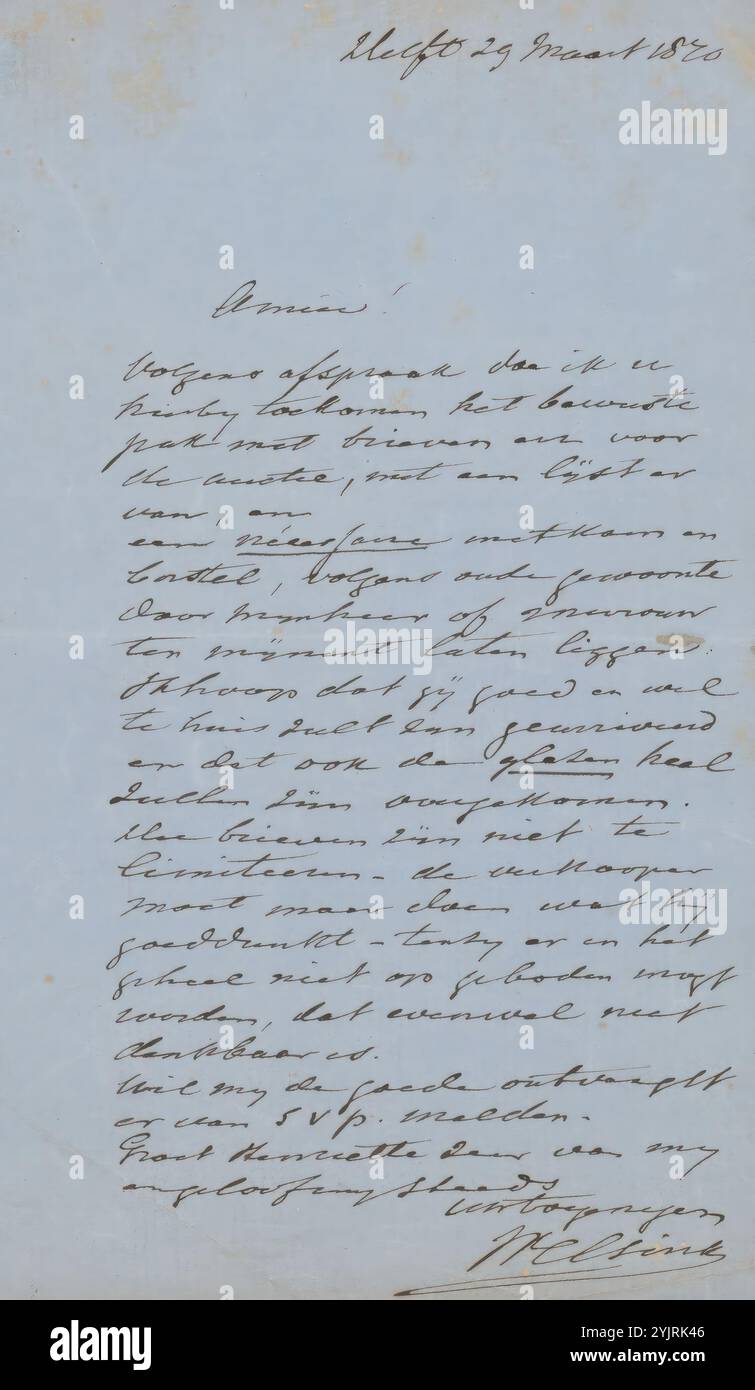 Delft 29 Maart 1870
Amice!
Volgens afspraak doe ik u
hierby toekomen het bewuste
pak met brieven en voor
de auctie, met een lijst er
van, en
een néccessaire met kam en
borstel, volgens oude gewoonte
door mynheer of mevrouw
ten mynent laten liggen.
Ik hoop dat gij goed en wel
te huis zult zyn gearriveerd
en dat ook de glazen heel
zullen zijn overgekomen.
De brieven zijn niet te
limiteeren – de verkooper
moet maar doen wat hij
goeddunkt – tenzy er in het
geheel niet op geboden mogt
worden, dat evenwel niet
denkbaar is.
Wil my de goede ontvangst
er van s v p. melden –
Groet Henriette zeer van my
en geloof my steeds
alamy
alamy
Image ID: 2YJRK46
www.alamy.com